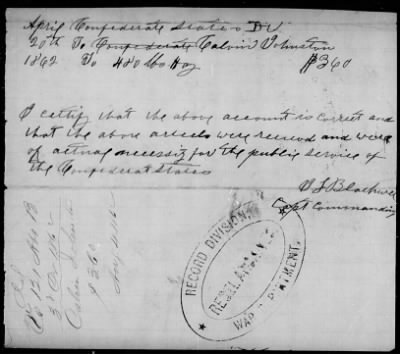 April Confederate States Dr
20th To Confederate Calvin Johnston
1862 To 480 lbs Hay $3.60
I certify that the above account is correct and
that the above articles were received and were
of actual necessity for the public service of
the Confederat States
Blackwell
Capt Commanding
RECORD DIVISION
REBEL ARCHIVES
WAR DEPARTMENT
Calvin Johnston
$3.60